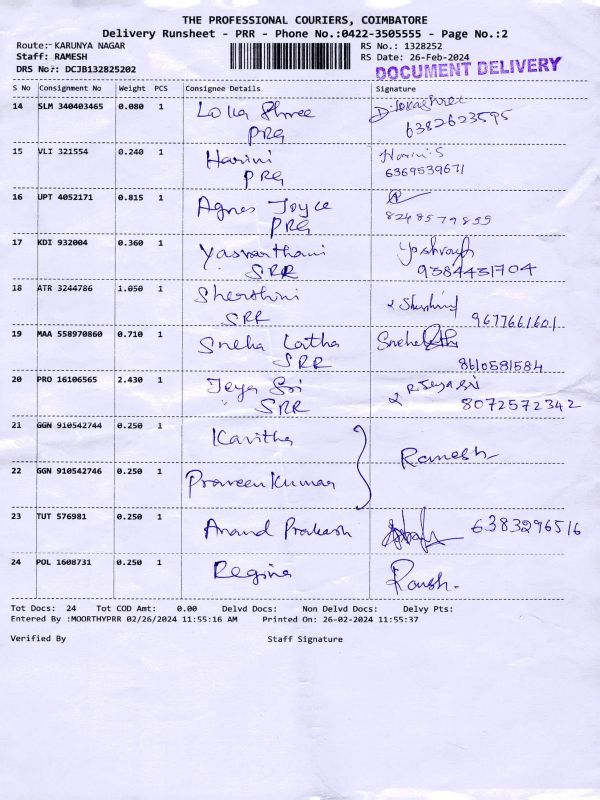 THE PROFESSIONAL COURIERS, COIMBATORE
Delivery Runsheet - PRR - Phone No.:0422-3505555 - Page No.:2
Route: KARUNYA NAGAR RS No.: 1328252
Staff: RAMESH RS Date: 26-Feb-2024
DRS No.: DCJB132825202 DOCUMENT DELIVERY
S No Consignment No Weight PCS Consignee Details Signature
14 SLM 340403465 0.080 1 Loka Shree D. Lokashree
PRG 6382623595
15 VLI 321554 0.240 1 Harini Harini.S
PRG 6369539671
16 UPT 4052171 0.815 1 Agnes Joyce
PRG 8248579855
17 KDI 932004 0.360 1 Yasvanthani
SRR 9384431704
18 ATR 3244786 1.050 1 Shershini
SRR 9677661601
19 MAA 558970860 0.710 1 Sneha Latha
SRR 8610581584
20 PRO 16106565 2.430 1 Jeya Sri R. Jeya Sri
SRR 8072572342
21 GGN 910542744 0.250 1 Kavitha
Ramesh
22 GGN 910542746 0.250 1 Praveen Kumar
23 TUT 576981 0.250 1 Anand Prakash 6383296516
24 POL 1608731 0.250 1 Regina Ramesh.
Tot Docs: 24 Tot COD Amt: 0.00 Delvd Docs: Non Delvd Docs: Delvy Pts:
Entered By :MOORTHYPRR 02/26/2024 11:55:16 AM Printed On: 26-02-2024 11:55:37
Verified By Staff Signature